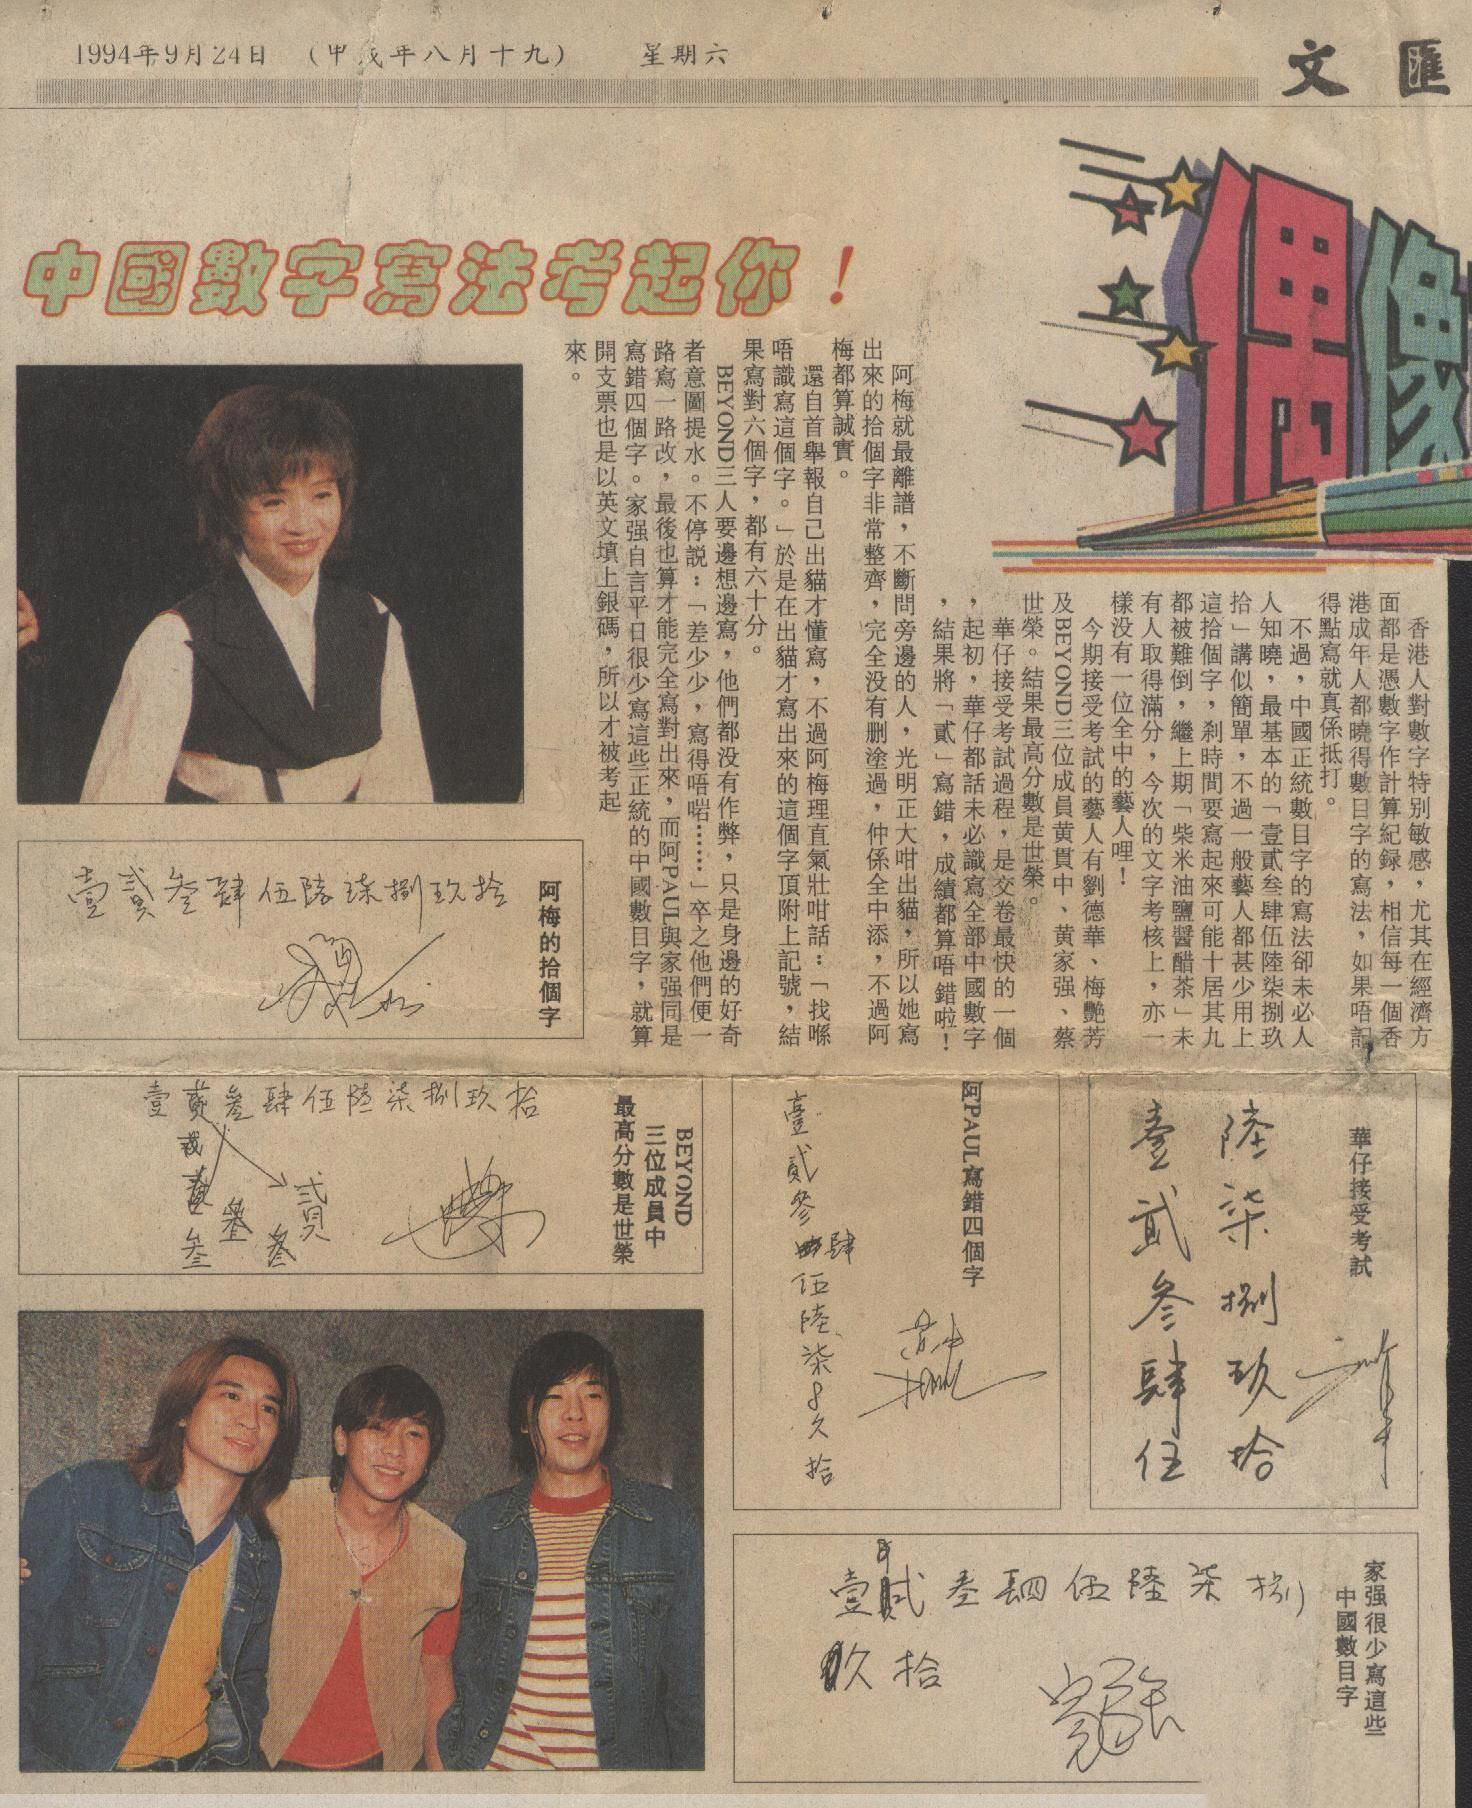 1994年9月24日 (甲戌年八月十九) 星期六
文匯
偶像
中國數字寫法考起你！
香港人對數字特別敏感，尤其在經濟方
面都是憑數字作計算紀録，相信每一個香
港成年人都曉得數目字的寫法，如果唔記
得點寫就真係抵打。
不過，中國正統數目字的寫法卻未必人
人知曉，最基本的「壹貳叁肆伍陸柒捌玖
拾」講似簡單，不過一般藝人都甚少用上
這拾個字，刹時間要寫起來可能十居其九
都被難倒，繼上期「柴米油鹽醬醋茶」未
有人取得滿分，今次的文字考核上，亦一
樣没有一位全中的藝人哩！
今期接受考試的藝人有劉德華、梅艷芳
及BEYOND三位成員黄貫中、黄家强、蔡
世榮。結果最高分數是世榮。
華仔接受考試過程，是交卷最快的一個
，起初，華仔都話未必識寫全部中國數字
，結果將「貳」寫錯，成績都算唔錯啦！
阿梅就最離譜，不斷問旁邊的人，光明正大咁出貓，所以她寫
出來的拾個字非常整齊，完全没有删塗過，仲係全中添，不過阿
梅都算誠實。
還自首舉報自己出貓才懂寫，不過阿梅理直氣壯咁話：「找喺
唔識寫這個字。」於是在出貓才寫出來的這個字頂附上記號，結
果寫對六個字，都有六十分。
BEYOND三人要邊想邊寫，他們都没有作弊，只是身邊的好奇
者意圖提水。不停説：「差少少，寫得唔啱……」卒之他們便一
路寫一路改，最後也算才能完全寫對出來，而阿PAUL與家强同是
寫錯四個字。家强自言平日很少寫這些正統的中國數目字，就算
開支票也是以英文填上銀碼，所以才被考起
來。
阿梅的拾個字
壹貳叁肆伍陸柒捌玖拾
BEYOND
三位成員中
最高分數是世榮
壹貳叁肆伍陸柒捌玖拾
阿PAUL寫錯四個字
壹貳參肆伍陸柒8久拾
華仔接受考試
壹貳參肆伍
陸柒捌玖拾
家强很少寫這些
中國數目字
伍陸柒捌
玖拾